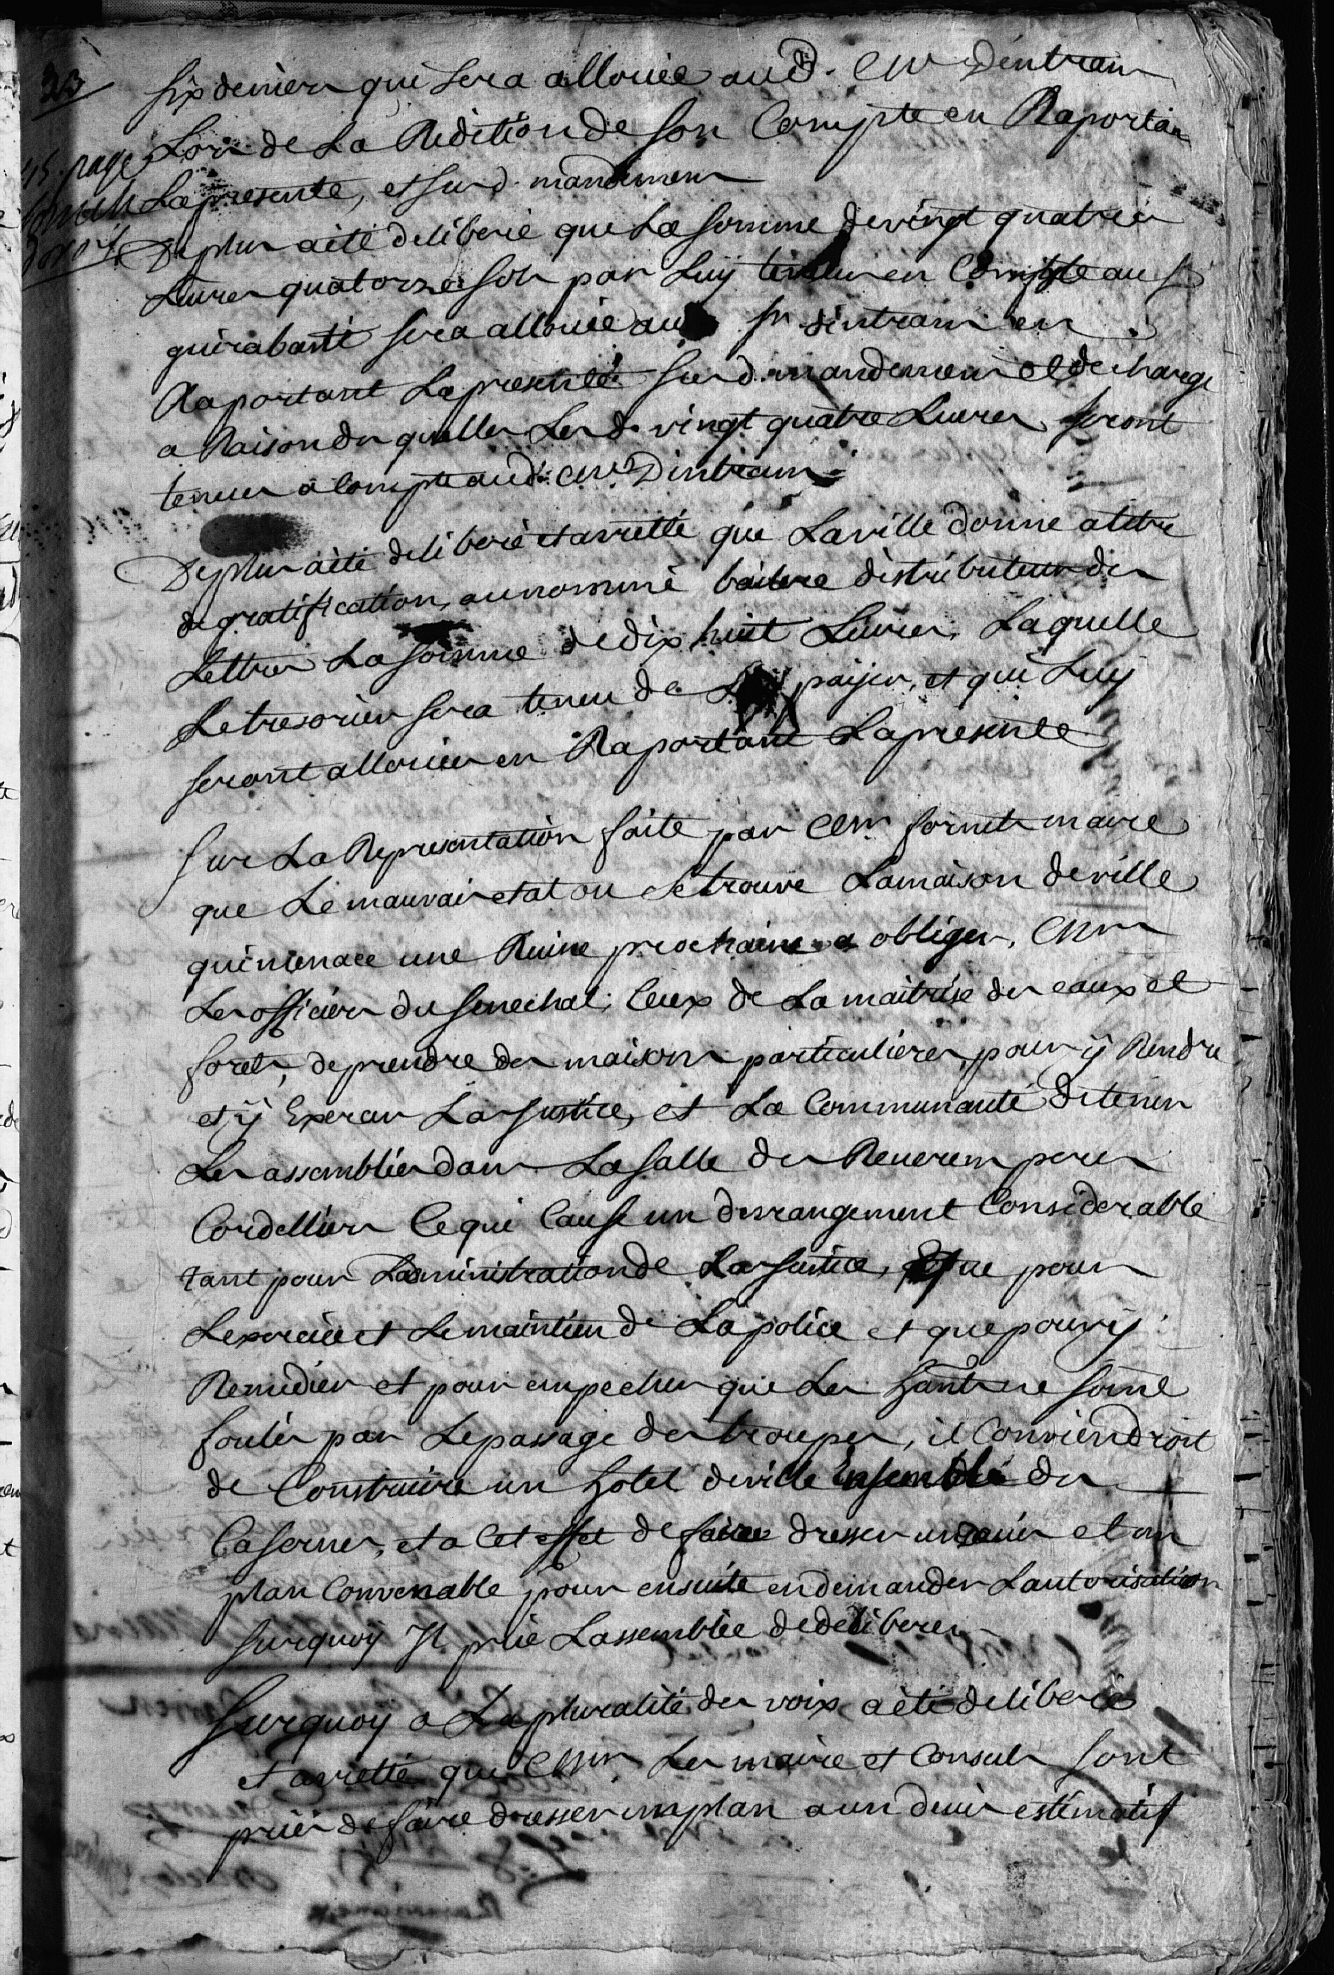 33
six deniers qui sera allouée aud. Mr Dintrans
Lors de La Redition de son Compte en Raportan
45. page
La presente, et sur d. mandemens
De plus a èté deliberé que La somme de vingt quatres
Livres quatorze sols par Luy tenues en Compte au Sr
guirabasté sera allouée au Sr dintrans en
Raportant La presente sur d. mandemens et decharge
a Raison des quelles Les d. vingt quatre Livres seront
tenues a compte aud. Mr Dintrans
De plus a èté deliberé et arretté que La ville donne a titre
de gratification, au nommé distributeur des
Lettres La somme de dix huit Livres, Laquelle
Le tresorier sera tenu de payer, et qui Luy
seront allouées en Raportant La presente
Sur La Representation faite par Mr fornets maire
que Le mauvais etat ou Se trouve La maison de ville
qui menace une Ruine prochaine a obligés, Mrs
Les officiers du senechal, Ceux de La maitrise des eaux et
forets, de prendre des maisons particulieres, pour y Rendre
et y Exercer La justice, et La Communauté de tenir
Les assemblées dans La Salle des Reverens peres
Cordelliers Ce qui Cause un desrangement Considerable
tant pour Ladministration de La justice, que pour
Lexercice et Le maintien de La police et que pour y
Remedier et pour empecher que Les hants ne soint
foulés par Le passage des troupes, il Conviendroit
de Construire un hotel de ville Ensemble des
Casernes, et a Cet effet de faire dresser un devis et un
plan Convenable pour ensuite en demander Lautorisation
surquoy Il prie Lassemblée de deliberer
Surquoy a La pluralité des voix a èté deliberé
et arretté que Mrs. Les maire et Consuls sont
priés de faire dresser un plan a un devis estimatif